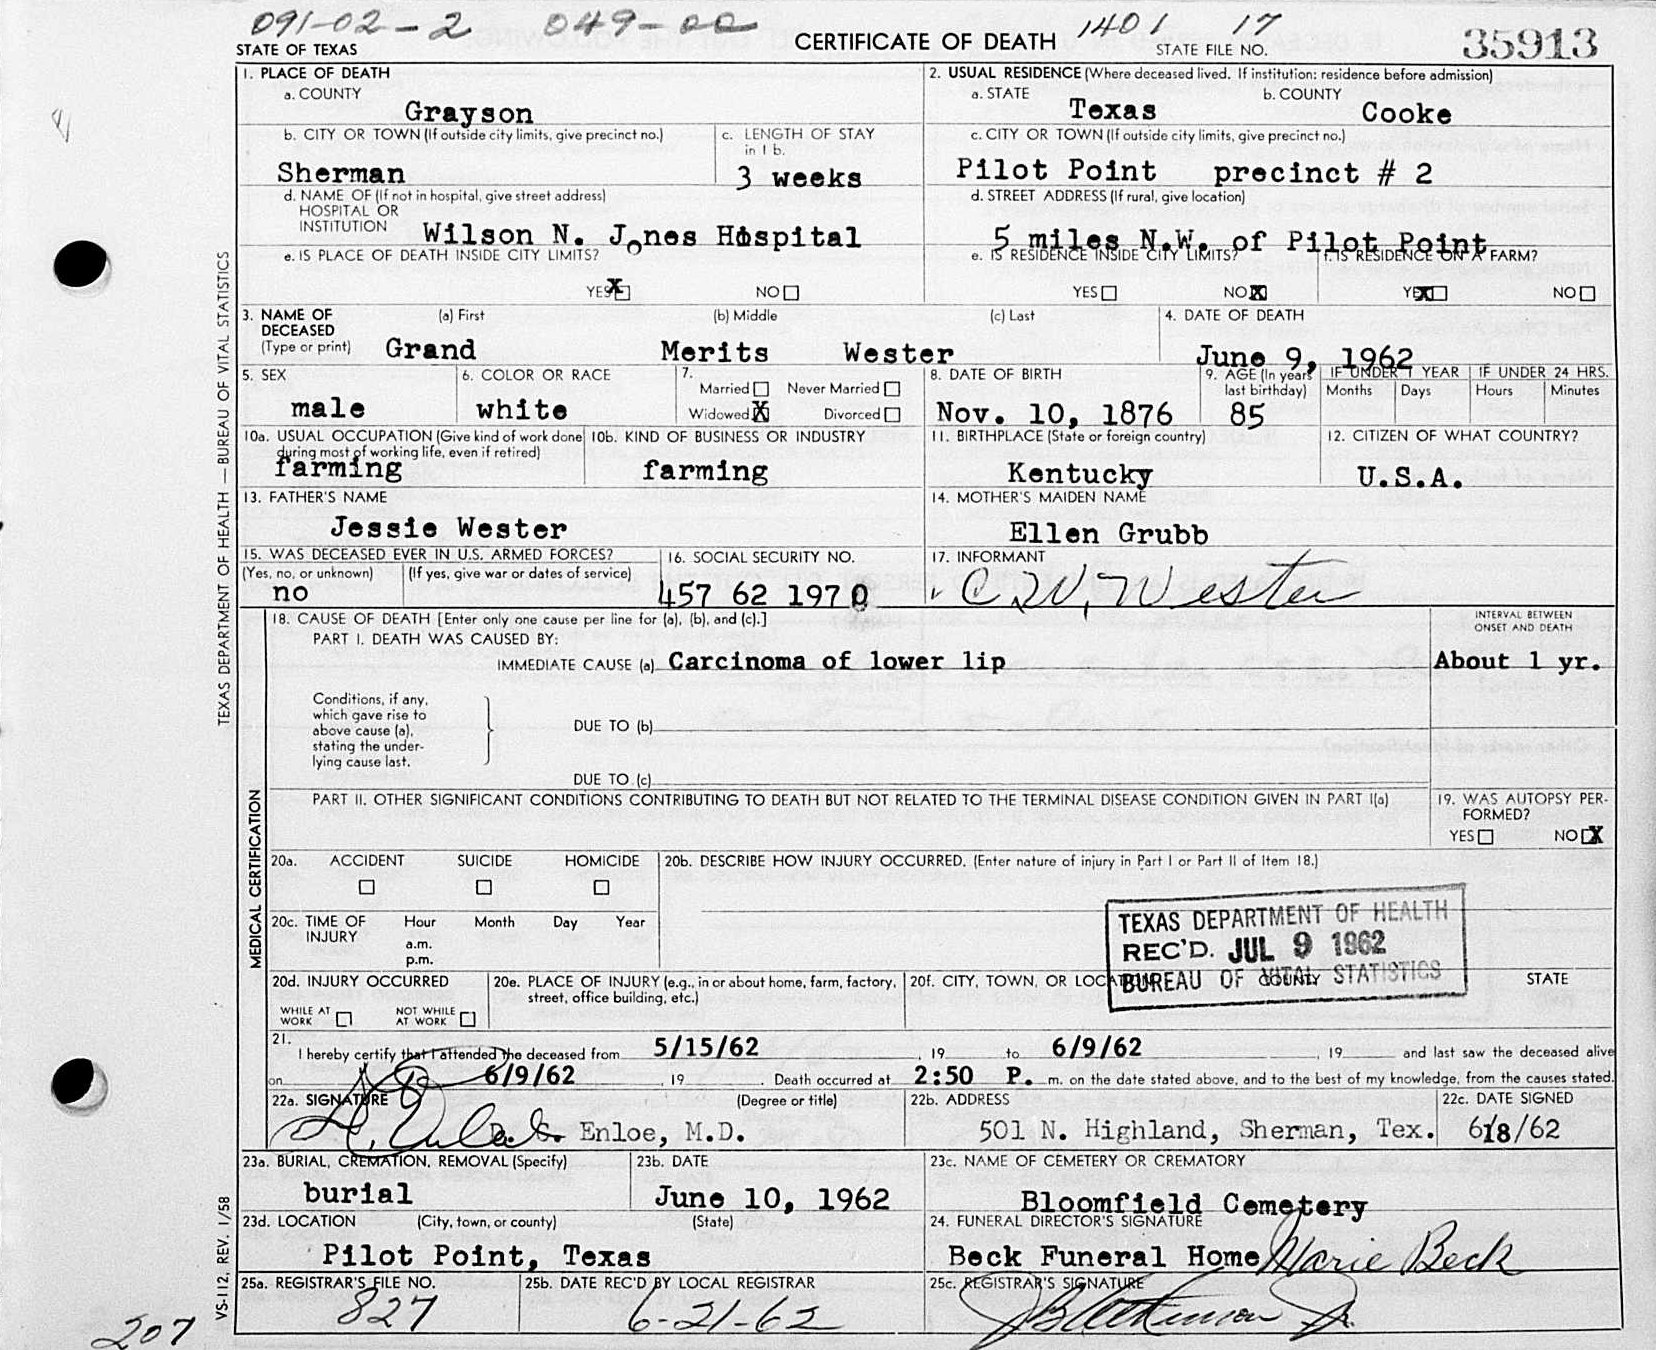 091-02-2 049-00 1401 17
STATE OF TEXAS CERTIFICATE OF DEATH STATE FILE NO. 35913
1. PLACE OF DEATH
a. COUNTY
Grayson
2. USUAL RESIDENCE (Where deceased lived. If institution: residence before admission)
a. STATE b. COUNTY
Texas Cooke
b. CITY OR TOWN (If outside city limits, give precinct no.)
Sherman
c. LENGTH OF STAY
in 1 b.
3 weeks
c. CITY OR TOWN (If outside city limits, give precinct no.)
Pilot Point precinct # 2
d. NAME OF (If not in hospital, give street address)
HOSPITAL OR
INSTITUTION Wilson N. Jones Hospital
d. STREET ADDRESS (If rural, give location)
5 miles N.W. of Pilot Point
e. IS PLACE OF DEATH INSIDE CITY LIMITS?
YES X NO
e. IS RESIDENCE INSIDE CITY LIMITS?
YES NO X
f. IS RESIDENCE ON A FARM?
YES X NO
3. NAME OF
DECEASED
(Type or print)
(a) First (b) Middle (c) Last
Grand Merits Wester
4. DATE OF DEATH
June 9, 1962
5. SEX
male
6. COLOR OR RACE
white
7.
Married Never Married
Widowed X Divorced
8. DATE OF BIRTH
Nov. 10, 1876
9. AGE (In years
last birthday)
85
IF UNDER 1 YEAR
Months Days
IF UNDER 24 HRS.
Hours Minutes
10a. USUAL OCCUPATION (Give kind of work done
during most of working life, even if retired)
farming
10b. KIND OF BUSINESS OR INDUSTRY
farming
11. BIRTHPLACE (State or foreign country)
Kentucky
12. CITIZEN OF WHAT COUNTRY?
U.S.A.
13. FATHER'S NAME
Jessie Wester
14. MOTHER'S MAIDEN NAME
Ellen Grubb
15. WAS DECEASED EVER IN U.S. ARMED FORCES?
(Yes, no, or unknown) (If yes, give war or dates of service)
no
16. SOCIAL SECURITY NO.
457 62 1970
17. INFORMANT
C. W. Wester
18. CAUSE OF DEATH [Enter only one cause per line for (a), (b), and (c).]
PART I. DEATH WAS CAUSED BY:
IMMEDIATE CAUSE (a) Carcinoma of lower lip
INTERVAL BETWEEN
ONSET AND DEATH
About 1 yr.
Conditions, if any,
which gave rise to
above cause (a),
stating the under-
lying cause last.
DUE TO (b)
DUE TO (c)
PART II. OTHER SIGNIFICANT CONDITIONS CONTRIBUTING TO DEATH BUT NOT RELATED TO THE TERMINAL DISEASE CONDITION GIVEN IN PART I(a)
19. WAS AUTOPSY PER-
FORMED?
YES NO X
20a. ACCIDENT SUICIDE HOMICIDE
20b. DESCRIBE HOW INJURY OCCURRED. (Enter nature of injury in Part I or Part II of Item 18.)
20c. TIME OF
INJURY
Hour Month Day Year
a.m.
p.m.
TEXAS DEPARTMENT OF HEALTH
REC'D. JUL 9 1962
BUREAU OF VITAL STATISTICS
20d. INJURY OCCURRED
WHILE AT
WORK
NOT WHILE
AT WORK
20e. PLACE OF INJURY (e.g., in or about home, farm, factory,
street, office building, etc.)
20f. CITY, TOWN, OR LOCATION COUNTY STATE
21.
I hereby certify that I attended the deceased from 5/15/62, 19 to 6/9/62, 19 and last saw the deceased alive
on 6/9/62, 19. Death occurred at 2:50 P. m. on the date stated above, and to the best of my knowledge, from the causes stated.
22a. SIGNATURE (Degree or title)
Enloe, M.D.
22b. ADDRESS
501 N. Highland, Sherman, Tex.
22c. DATE SIGNED
6/18/62
23a. BURIAL, CREMATION, REMOVAL (Specify)
burial
23b. DATE
June 10, 1962
23c. NAME OF CEMETERY OR CREMATORY
Bloomfield Cemetery
23d. LOCATION (City, town, or county) (State)
Pilot Point, Texas
24. FUNERAL DIRECTOR'S SIGNATURE
Beck Funeral Home Marie Beck
25a. REGISTRAR'S FILE NO.
827
25b. DATE REC'D BY LOCAL REGISTRAR
6-21-62
25c. REGISTRAR'S SIGNATURE
TEXAS DEPARTMENT OF HEALTH — BUREAU OF VITAL STATISTICS
MEDICAL CERTIFICATION
VS-112, REV. 1/58
207